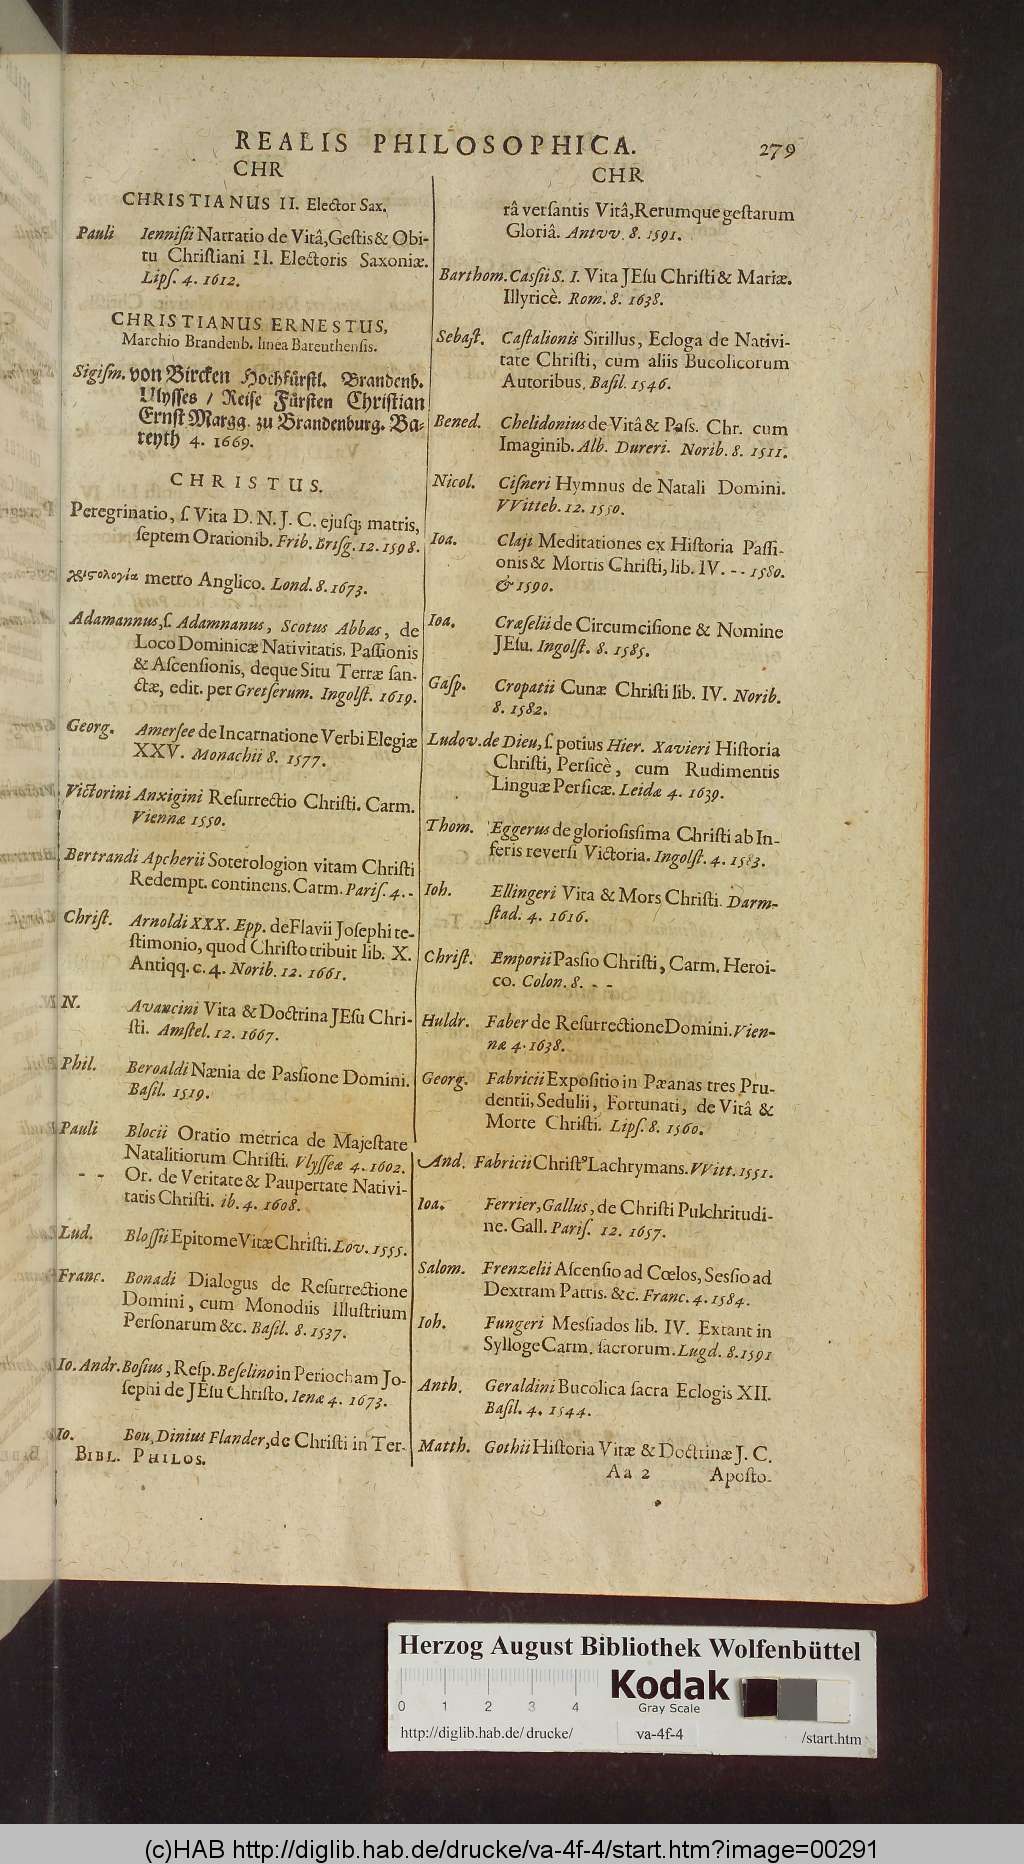 REALIS PHILOSOPHICA. 279
CHR
CHRISTIANUS II. Elector Sax.
Pauli Ienniſii Narratio de Vitâ, Geſtis & Obi-
tu Chriſtiani II. Electoris Saxoniæ.
Lipſ. 4. 1612.
CHRISTIANUS ERNESTUS,
Marchio Brandenb. linea Baruthenſis.
Sigiſm. von Bircken Hochfürſtl. Brandenb.
Ulyſſes / Reiſe Fürſten Chriſtian
Ernſt Margg. zu Brandenburg. Ba-
reyth 4. 1669.
CHRISTUS.
Peregrinatio, ſ. Vita D. N. J. C. ejuſq; matris,
ſeptem Orationib. Frib. Briſg. 12. 1598.
χριστολογία metro Anglico. Lond. 8. 1673.
Adamannus, ſ. Adamnanus, Scotus Abbas, de
Loco Dominicæ Nativitatis, Paſſionis
& Aſcenſionis, deque Situ Terræ ſan-
ctæ, edit. per Gretſerum. Ingolſt. 1619.
Georg. Amerſee de Incarnatione Verbi Elegiæ
XXV. Monachii 8. 1577.
Victorini Anxigini Reſurrectio Chriſti. Carm.
Viennæ 1550.
Bertrandi Apcherii Soterologion vitam Chriſti
Redempt. continens. Carm. Pariſ. 4. -
Chriſt. Arnoldi XXX. Epp. de Flavii Joſephi te-
ſtimonio, quod Chriſto tribuit lib. X.
Antiqq. c. 4. Norib. 12. 1661.
N. Avancini Vita & Doctrina JEſu Chri-
ſti. Amſtel. 12. 1667.
Phil. Beroaldi Nænia de Paſſione Domini.
Baſil. 1519.
Pauli Blocii Oratio metrica de Majeſtate
Natalitiorum Chriſti. Vlyſſeæ 4. 1602.
- - Or. de Veritate & Paupertate Nativi-
tatis Chriſti. ib. 4. 1608.
Lud. Bloſſii Epitome Vitæ Chriſti. Lov. 1555.
Franc. Bonadi Dialogus de Reſurrectione
Domini, cum Monodiis Illuſtrium
Perſonarum &c. Baſil. 8. 1537.
Io. Andr. Boſius, Reſp. Beſelino in Periocham Jo-
ſephi de JEſu Chriſto. Ienæ 4. 1673.
Io. Bou, Dinius Flander, de Chriſti in Ter-
BIBL. PHILOS.
CHR
râ verſantis Vitâ, Rerumque geſtarum
Gloriâ. Antvv. 8. 1591.
Barthom. Caſſii S. I. Vita JEſu Chriſti & Mariæ.
Illyricè. Rom. 8. 1638.
Sebaſt. Caſtalionis Sirillus, Ecloga de Nativi-
tate Chriſti, cum aliis Bucolicorum
Autoribus. Baſil. 1546.
Bened. Chelidonius de Vitâ & Paſſ. Chr. cum
Imaginib. Alb. Dureri. Norib. 8. 1511.
Nicol. Ciſneri Hymnus de Natali Domini.
VVitteb. 12. 1550.
Ioa. Claji Meditationes ex Hiſtoria Paſſi-
onis & Mortis Chriſti, lib. IV. - - 1580.
& 1590.
Ioa. Cræſelii de Circumciſione & Nomine
JEſu. Ingolſt. 8. 1585.
Gaſp. Cropatii Cunæ Chriſti lib. IV. Norib.
8. 1582.
Ludov. de Dieu, ſ. potius Hier. Xavieri Hiſtoria
Chriſti, Perſicè, cum Rudimentis
Linguæ Perſicæ. Leidæ 4. 1639.
Thom. Eggerus de glorioſiſſima Chriſti ab In-
feris reverſi Victoria. Ingolſt. 4. 1583.
Ioh. Ellingeri Vita & Mors Chriſti. Darm-
ſtad. 4. 1616.
Chriſt. Emporii Paſſio Chriſti, Carm. Heroi-
co. Colon. 8. - -
Huldr. Faber de Reſurrectione Domini. Vien-
næ 4. 1638.
Georg. Fabricii Expoſitio in Pæanas tres Pru-
dentii, Sedulii, Fortunati, de Vitâ &
Morte Chriſti. Lipſ. 8. 1560.
And. Fabricii Chriſt9 Lachrymans. VVitt. 1551.
Ioa. Ferrier, Gallus, de Chriſti Pulchritudi-
ne. Gall. Pariſ. 12. 1657.
Salom. Frenzelii Aſcenſio ad Cœlos, Seſſio ad
Dextram Patris. &c. Franc. 4. 1584.
Ioh. Fungeri Meſſiados lib. IV. Extant in
Sylloge Carm. ſacrorum. Lugd. 8. 1591
Anth. Geraldini Bucolica ſacra Eclogis XII.
Baſil. 4. 1544.
Matth. Gothii Hiſtoria Vitæ & Doctrinæ J. C.
Aa 2 Apoſto-
Herzog August Bibliothek Wolfenbüttel
Kodak
Gray Scale
0 1 2 3 4
http://diglib.hab.de/drucke/ va-4f-4 /start.htm
(c)HAB http://diglib.hab.de/drucke/va-4f-4/start.htm?image=00291